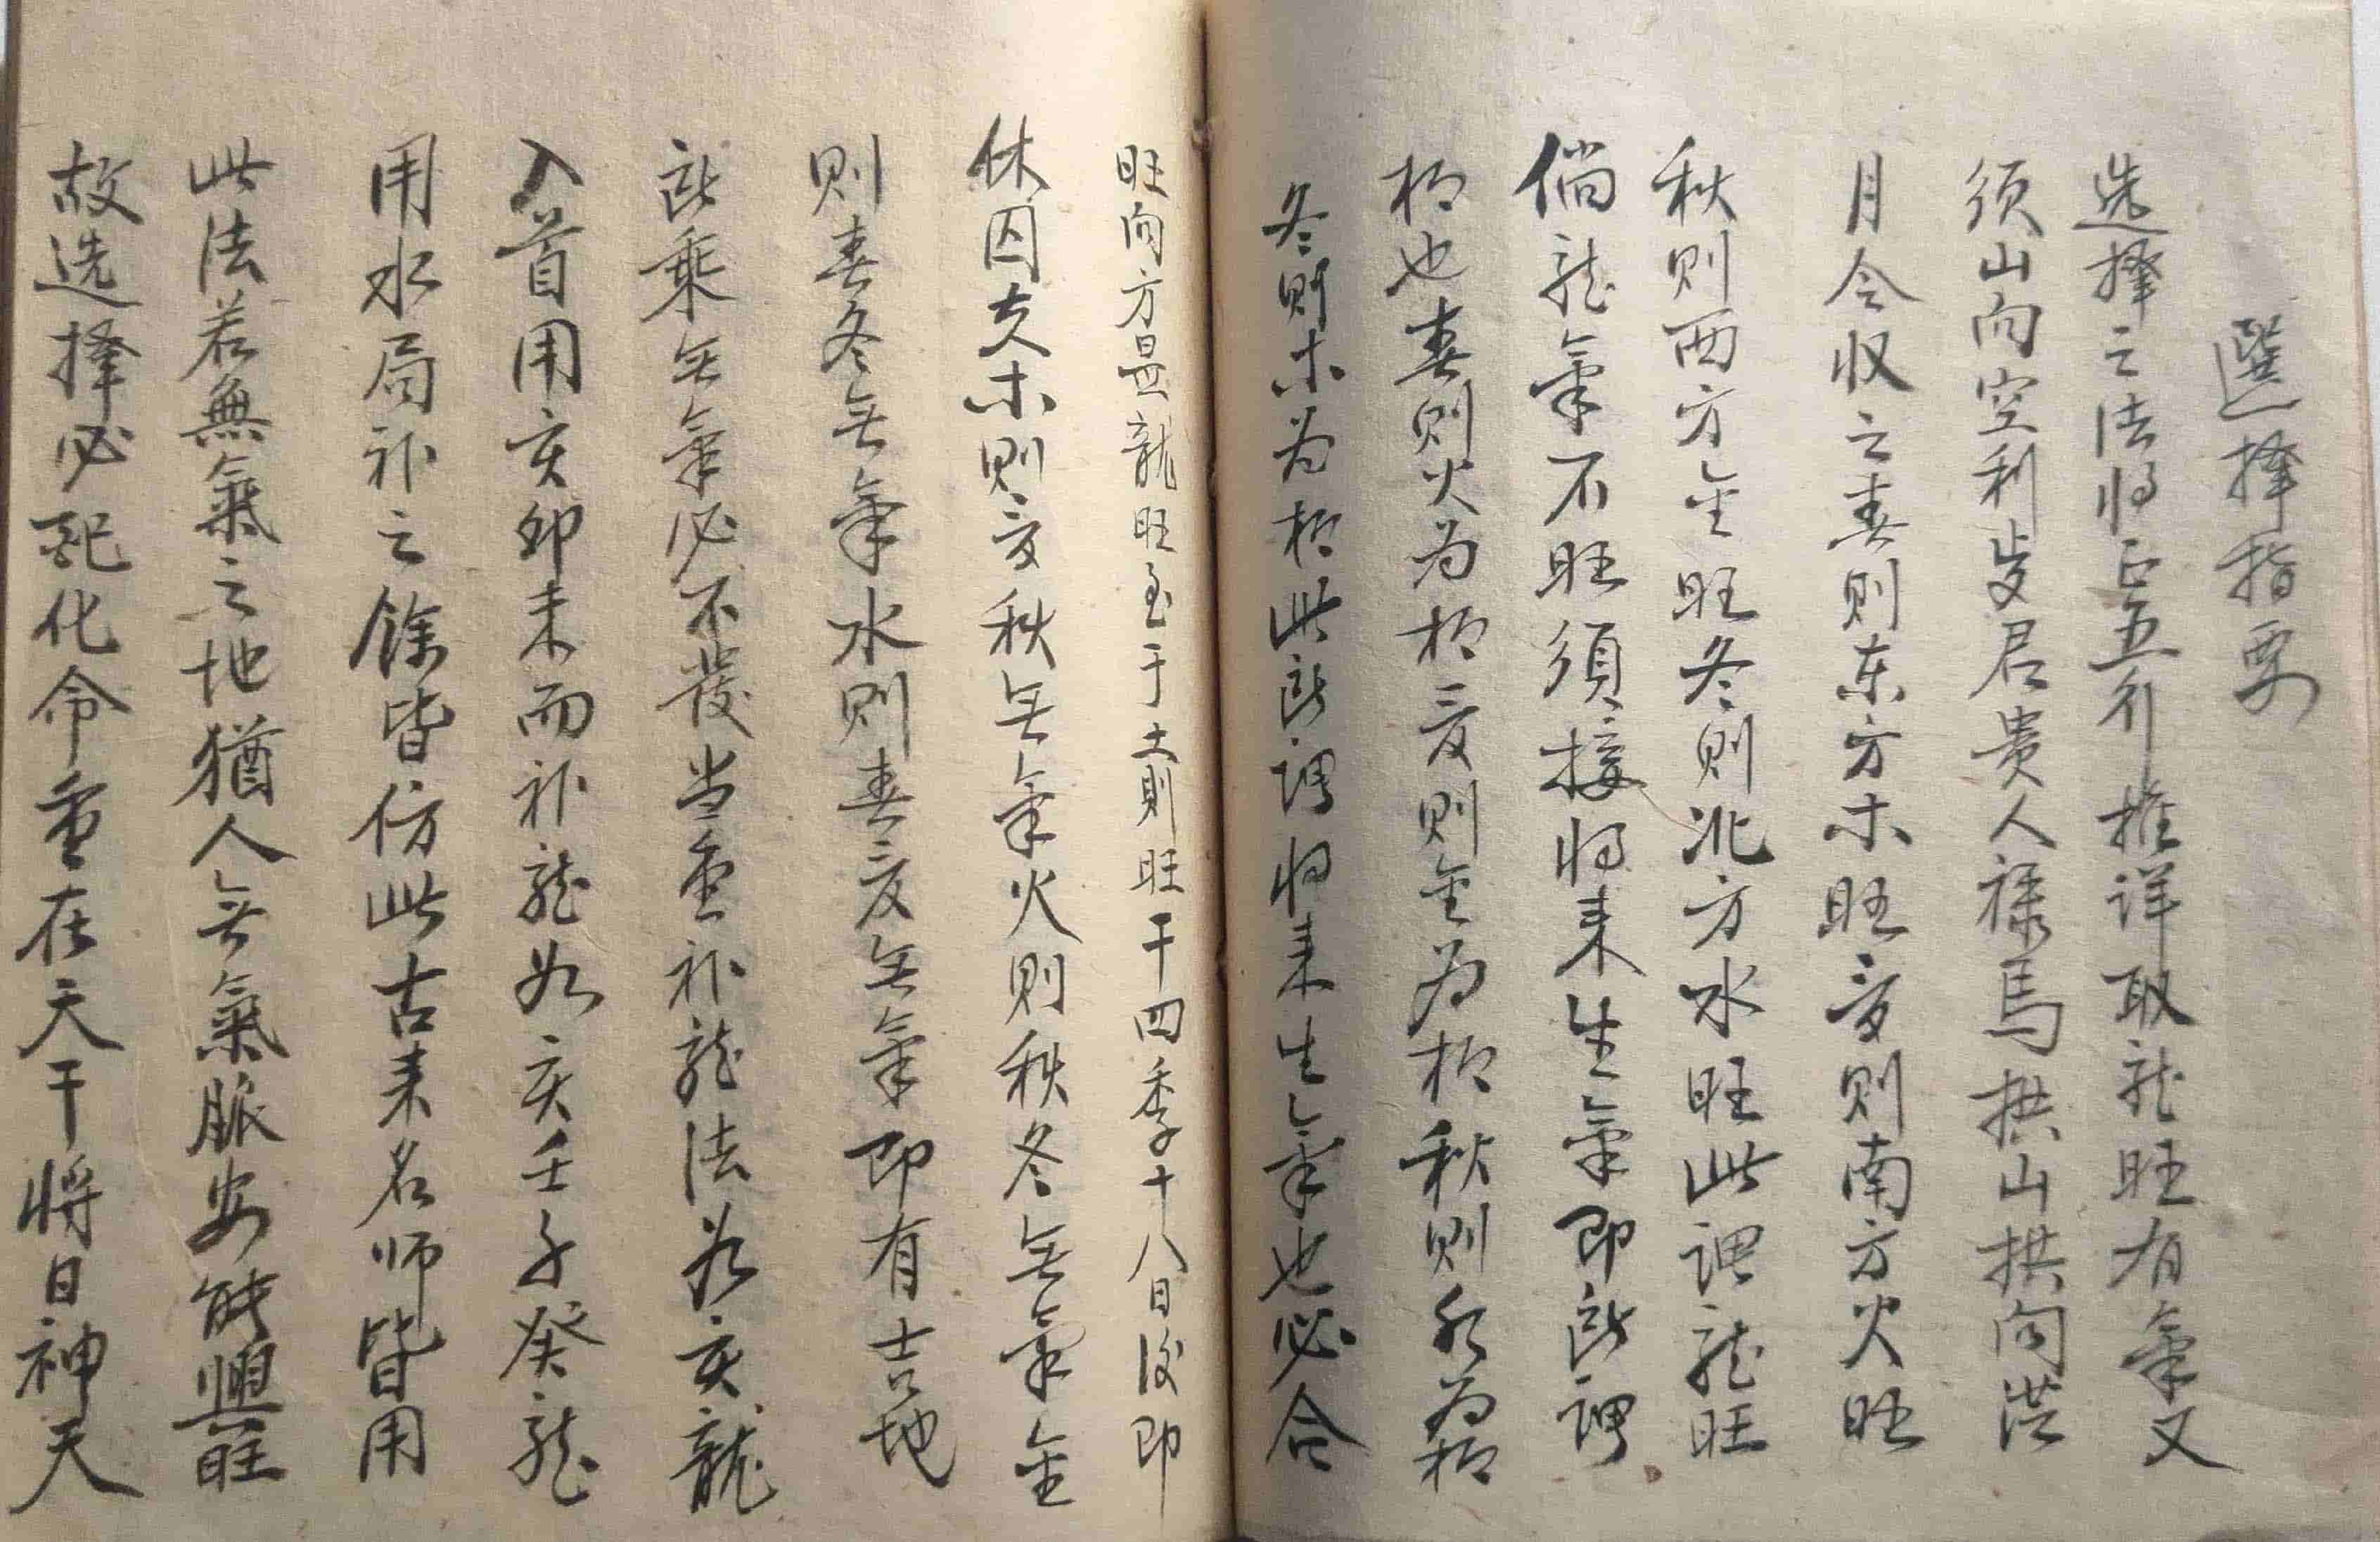 選擇指要
选擇之法将正五行推詳取龙旺有氣又
须山向空利岁君贵人禄馬拱山拱向從
月令収之春则东方木旺夏则南方火旺
秋则西方金旺冬则北方水旺此謂龙旺
倘龙氣不旺須接将来生氣即所谓
相也春则火为相夏则金为相秋则水为相
冬则木为相此所謂将来生氣也必合
旺向方是龍旺至于土則旺于四季十八日後即
休囚矣木则夏秋無氣火则秋冬無氣金
则春冬無氣水则春夏無氣即有吉地
所乘無氣必不發当重补龙法如亥龍
入首用亥卯未而补龙如亥壬子癸龙
用水局补之餘皆仿此古来名师皆用
此法若無氣之地猶人無氣脈安能興旺
故选擇必配化命重在天干将日神天